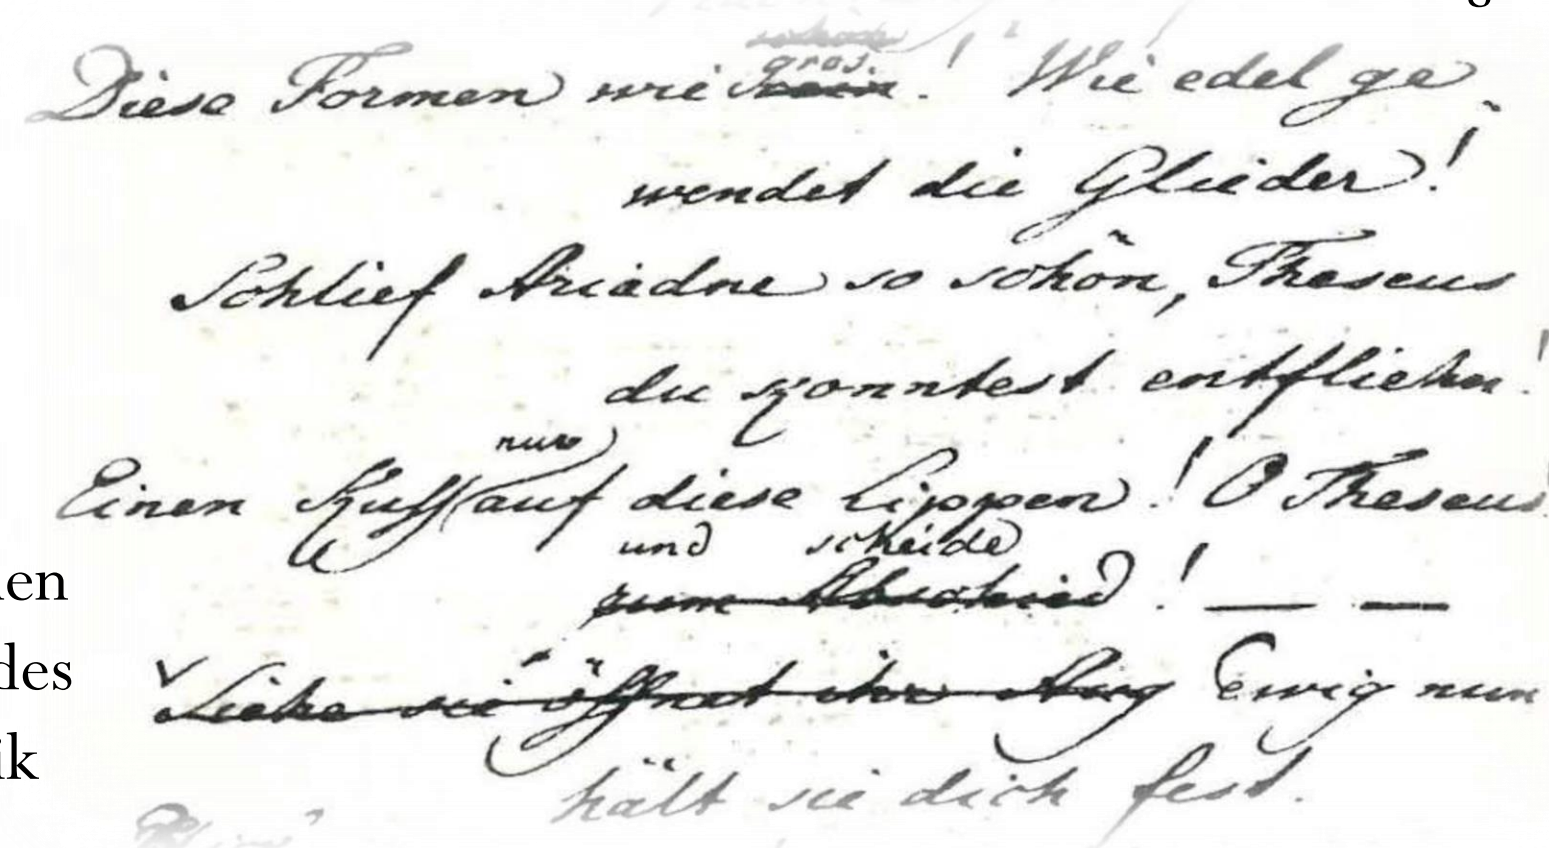 g
gros.
Diese Formen wie ! Wie edel ge
wendet die Glieder!
Schlief Ariadne so schön, Theseus
du konntest entfliehn!
nur
Einen Kuss auf diese Lippen! O Theseus
und scheide
zum Abschied! — —
Siehe sie öffnet ihr Aug Ewig nun
hält sie dich fest.
en
des
ik